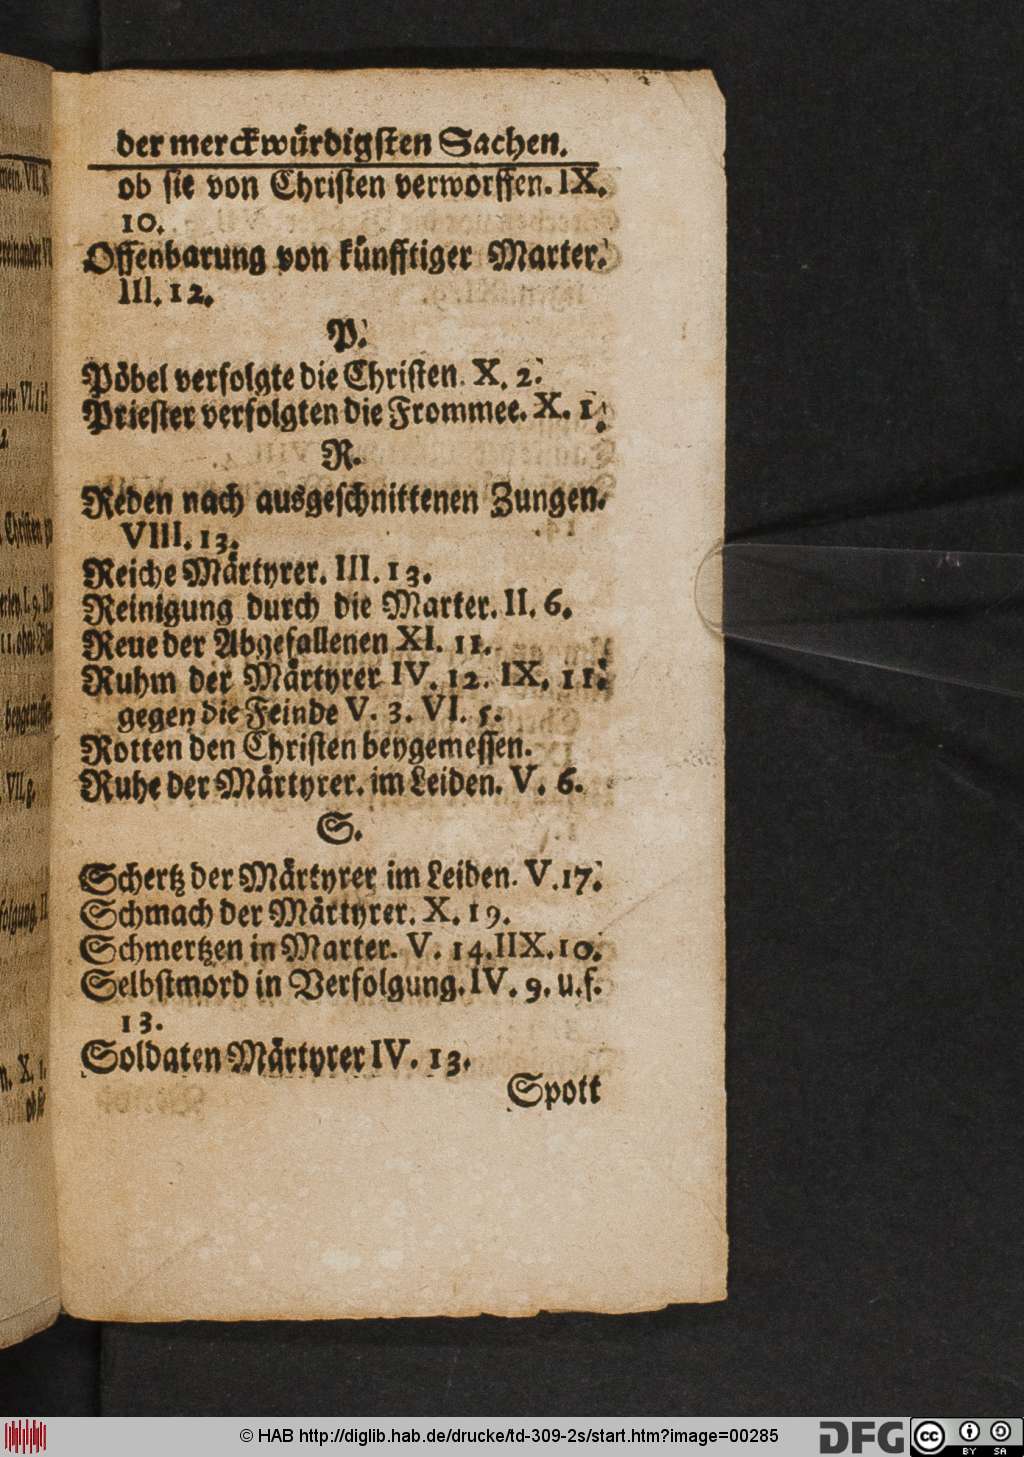 der merckwürdigsten Sachen.
ob sie von Christen verworffen. IX.
10.
Offenbarung von künfftiger Marter.
III. 12.
P.
Pöbel verfolgte die Christen. X. 2.
Priester verfolgten die Frommee. X. 1.
R.
Reden nach ausgeschnittenen Zungen.
VIII. 13.
Reiche Märtyrer. III. 13.
Reinigung durch die Marter. II. 6.
Reue der Abgefallenen XI. 11.
Ruhm der Märtyrer IV. 12. IX. 11.
gegen die Feinde V. 3. VI. 5.
Rotten den Christen beygemessen.
Ruhe der Märtyrer. im Leiden. V. 6.
S.
Schertz der Märtyrer im Leiden. V. 17.
Schmach der Märtyrer. X. 19.
Schmertzen in Marter. V. 14. IIX. 10.
Selbstmord in Verfolgung. IV. 9. u. f.
13.
Soldaten Märtyrer IV. 13.
Spott
© HAB http://diglib.hab.de/drucke/td-309-2s/start.htm?image=00285
DFG
cc
BY SA